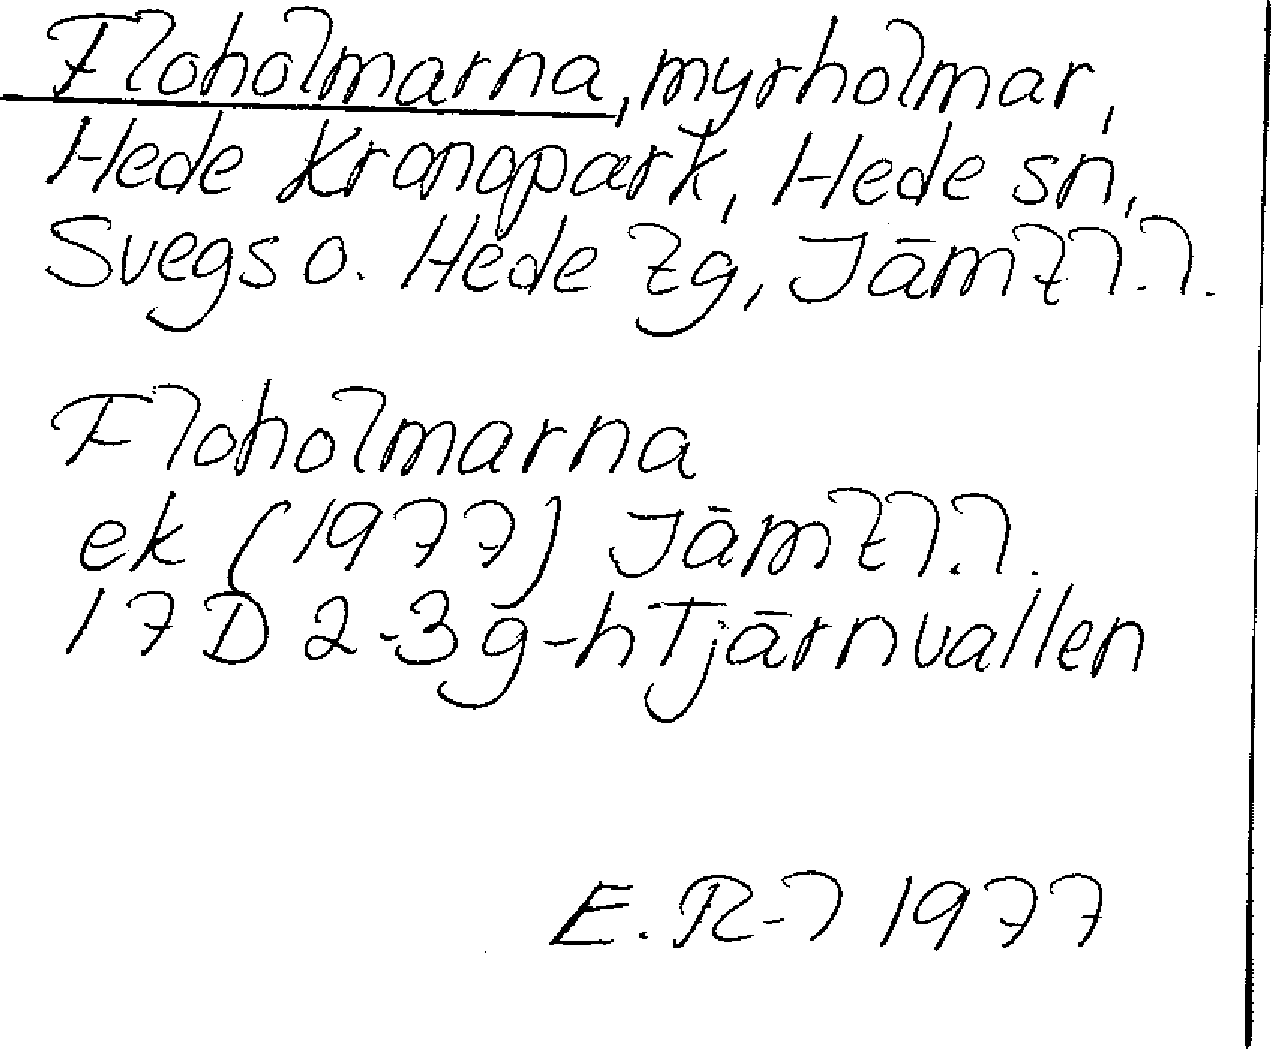 Floholmarna, myrholmar,
Hede Kronopark, Hede sn,
Svegs o. Hede tg, Jämtl.l.
Floholmarna
ek (1977) Jämtl.l.
17D 2-3g-h Tjärnvallen
E.R-l 1977